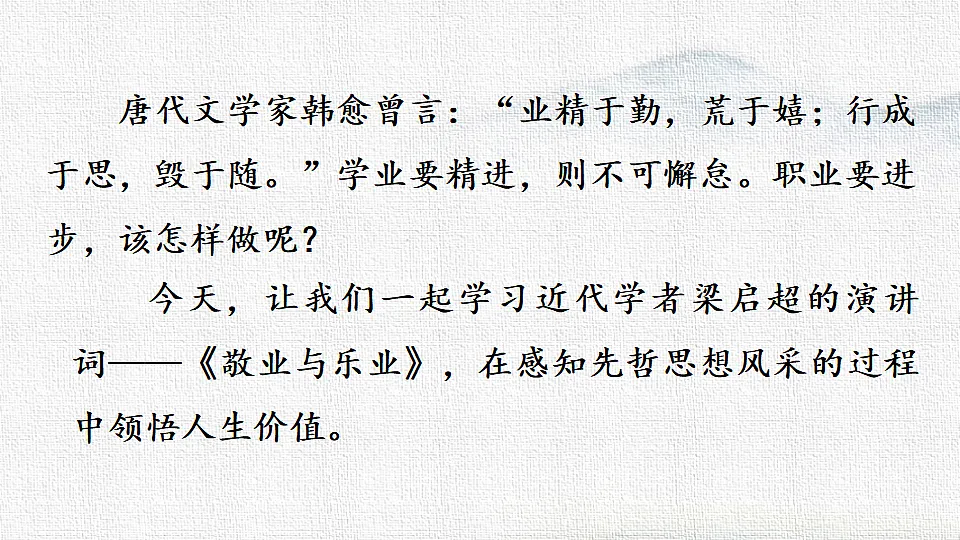 唐代文学家韩愈曾言：“业精于勤，荒于嬉；行成
于思，毁于随。”学业要精进，则不可懈怠。职业要进
步，该怎样做呢？
今天，让我们一起学习近代学者梁启超的演讲
词——《敬业与乐业》，在感知先哲思想风采的过程
中领悟人生价值。